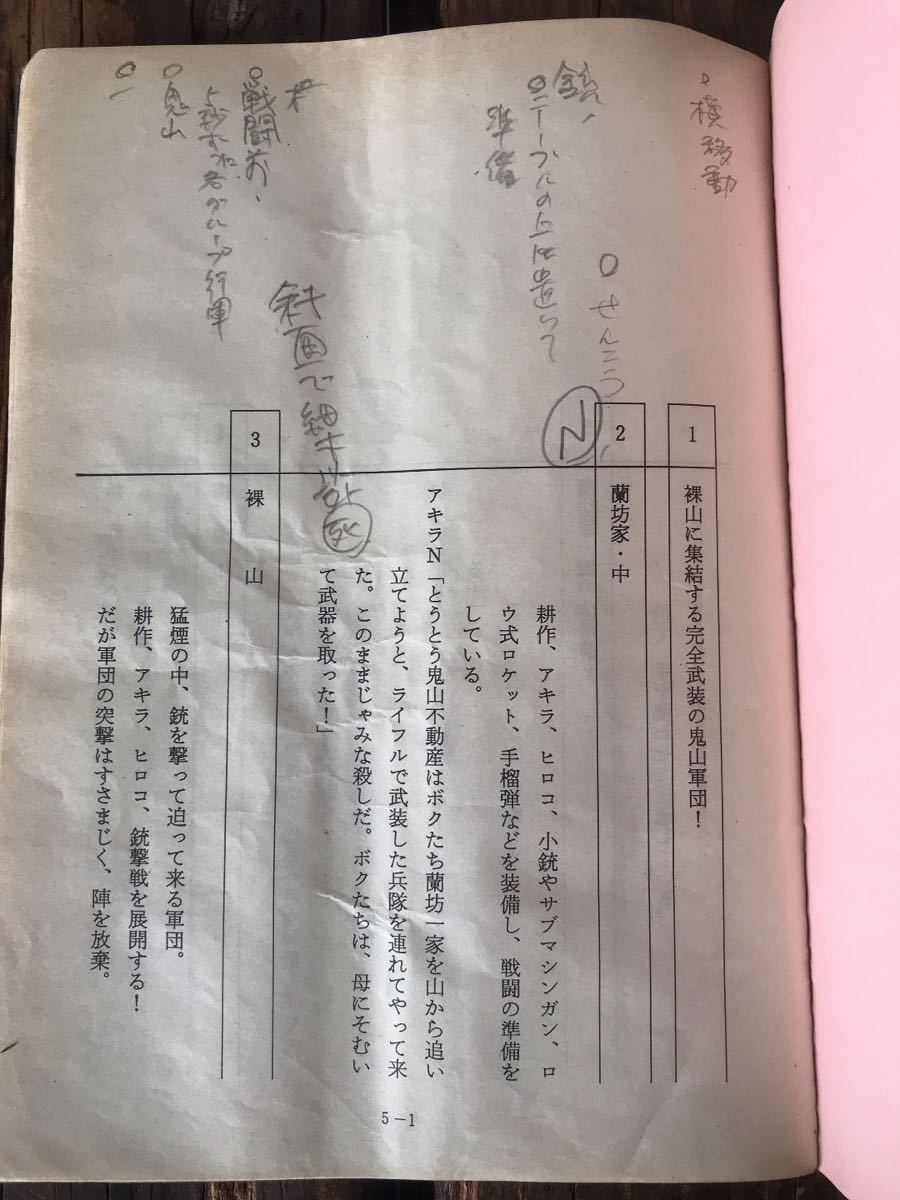 横移動
せんこう
銃、
テーブルの上に置いて
準備
N
戦闘前、
鬼山
1
裸山に集結する完全武装の鬼山軍団！
2
蘭坊家・中
耕作、アキラ、ヒロコ、小銃やサブマシンガン、ロ
ウ式ロケット、手榴弾などを装備し、戦闘の準備を
している。
アキラN「とうとう鬼山不動産はボクたち蘭坊一家を山から追い
立てようと、ライフルで武装した兵隊を連れてやって来
た。このままじゃみな殺しだ。ボクたちは、母にそむい
て武器を取った！」
3
裸　山
猛煙の中、銃を撃って迫って来る軍団。
耕作、アキラ、ヒロコ、銃撃戦を展開する！
だが軍団の突撃はすさまじく、陣を放棄。
5－1